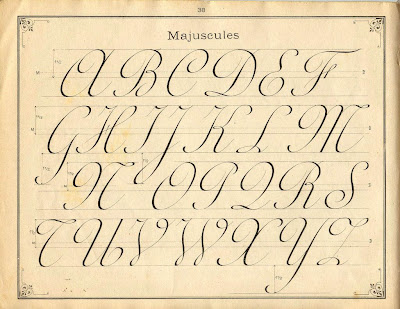 38
Majuscules
A B C D E F
G H I J K L M
N O P Q R S
T U V W X Y Z